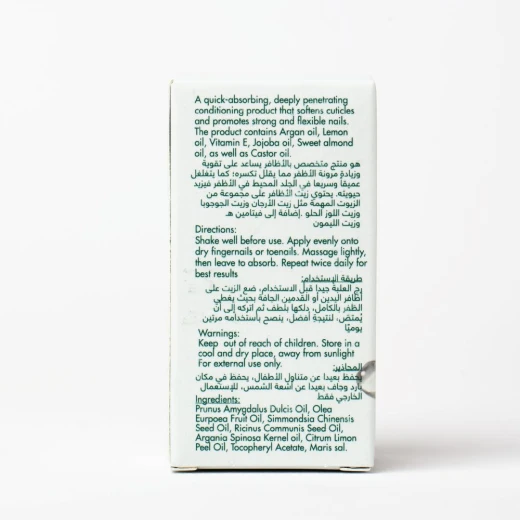 A quick-absorbing, deeply penetrating
conditioning product that softens cuticles
and promotes strong and flexible nails.
The product contains Argan oil, Lemon
oil, Vitamin E, Jojoba oil, Sweet almond
oil, as well as Castor oil.
هو منتج متخصص بالأظافر يساعد على تقوية
وزيادة مرونة الأظفر مما يقلل تكسره؛ كما يتغلغل
عميقا وسريعا في الجلد المحيط في الأظفر فيزيد
حيويته. يحتوي زيت الأظافر على مجموعة من
الزيوت المهمة مثل زيت الأرجان وزيت الجوجوبا
وزيت اللوز الحلو .إضافة إلى فيتامين هـ
وزيت الليمون
Directions:
Shake well before use. Apply evenly onto
dry fingernails or toenails. Massage lightly,
then leave to absorb. Repeat twice daily for
best results
طريقة الاستخدام:
رج العلبة جيدا قبل الاستخدام، ضع الزيت على
أظافر اليدين أو القدمين الجافة بحيث يغطي
الظفر بالكامل، دلكها بلطف ثم اتركه إلى أن
يُمتص، لنتيجة أفضل، ينصح باستخدامه مرتين
يوميًا
Warnings:
Keep out of reach of children. Store in a
cool and dry place, away from sunlight
For external use only.
المحاذير:
يحفظ بعيدا عن متناول الأطفال، يحفظ في مكان
بارد وجاف بعيدا عن أشعة الشمس، للإستعمال
الخارجي فقط
Ingredients:
Prunus Amygdalus Dulcis Oil, Olea
Eurpoea Fruit Oil, Simmondsia Chinensis
Seed Oil, Ricinus Communis Seed Oil,
Argania Spinosa Kernel oil, Citrum Limon
Peel Oil, Tocopheryl Acetate, Maris sal.